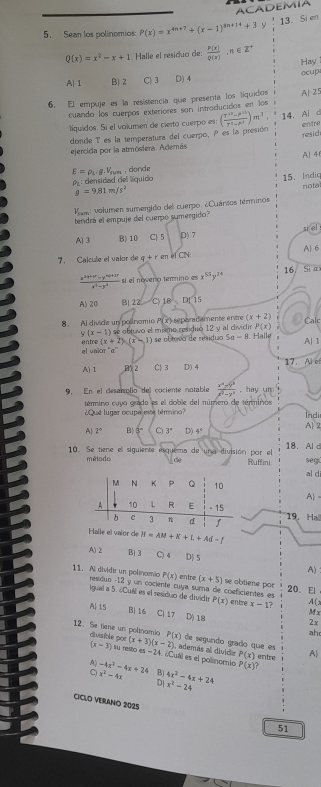 ACADEMIA
5. Sean los polinomios: P(x) = x^{4n+7} + (x − 1)^{8n+14} + 3 y
Q(x) = x² − x + 1. Halle el residuo de: P(x)/Q(x), n ∈ Z⁺
A) 1 B) 2 C) 3 D) 4
6. El empuje es la resistencia que presenta los líquidos
cuando los cuerpos exteriores son introducidos en los
líquidos. Si el volumen de cierto cuerpo es: m³,
donde T es la temperatura del cuerpo, P es la presión
ejercida por la atmósfera. Además
E = ρL.g.Vsum, donde
ρL: densidad del líquido
g = 9,81 m/s²
Vsum: volumen sumergido del cuerpo. ¿Cuántos términos
tendrá el empuje del cuerpo sumergido?
A) 3 B) 10 C) 5 D) 7
7. Calcule el valor de q + r en el CN:
si el noveno término es
A) 20 B) 22 C) 18 D) 15
8. Al dividir un polinomio P(x) separadamente entre (x + 2)
y (x − 1) se obtuvo el mismo residuo 12 y al dividir P(x)
entre (x + 2).(x − 1) se obtuvo de residuo 5a − 8. Halle
el valor "a"
A) 1 B) 2 C) 3 D) 4
9. En el desarrollo del cociente notable , hay un
término cuyo grado es el doble del número de términos
¿Qué lugar ocupa este término?
A) 2° B) 3° C) 3° D) 4°
10. Se tiene el siguiente esquema de una división por el
método de Ruffini:
M N K P Q 10
A 10 L R E -15
b c 3 n d f
Halle el valor de H = AM + K + L + Ad − f
A) 2 B) 3 C) 4 D) 5
11. Al dividir un polinomio P(x) entre (x + 5) se obtiene por
residuo -12 y un cociente cuya suma de coeficientes es
igual a 5. ¿Cuál es el residuo de dividir P(x) entre x − 1?
A) 15 B) 16 C) 17 D) 18
12. Se tiene un polinomio P(x) de segundo grado que es
divisible por (x + 3)(x − 2), además al dividir P(x) entre
(x − 3) su resto es −24. ¿Cuál es el polinomio P(x)?
A) −4x² − 4x + 24 B) 4x² − 4x + 24
C) x² − 4x D) x² − 24
CICLO VERANO 2025
51
13. Si en
Hay
ocup
A) 25
14. Al d
entre
resid
A) 4
15. Indiq
nota
si el
A) 6
16. Si
Calc
A) 1
17. Al
Indi
A) 2
18. Al d
segú
al di
A) -
19. Hal
A)
20. El
A(x
Mx
2x
aho
A)